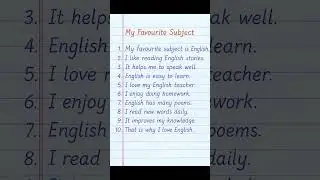 My Favourite Subject
1. My favourite subject is English.
2. I like reading English stories.
3. It helps me to speak well.
4. English is easy to learn.
5. I love my English teacher.
6. I enjoy doing homework.
7. English has many poems.
8. I read new words daily.
9. It improves my knowledge.
10. That is why I love English.
3. It
4. English
5. I love
6. I enjoy
7. English
8. I read
well.
learn.
teacher.
poems.
daily.